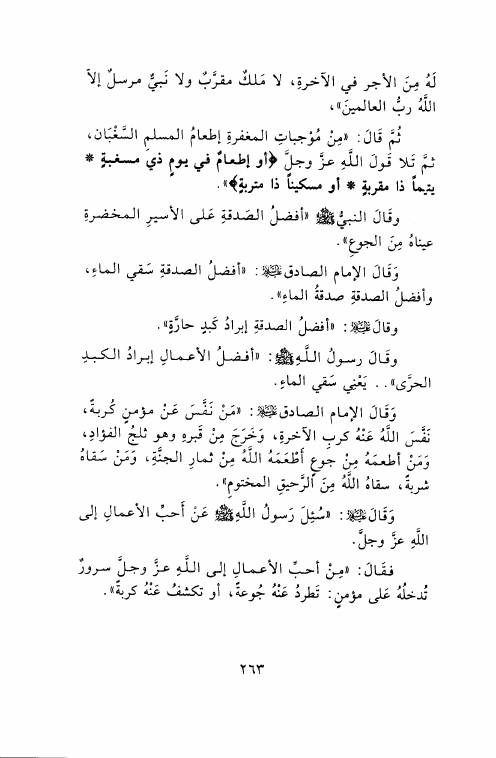 لَهُ مِنَ الأجر في الآخرةِ، لا مَلكٌ مقرَّبٌ ولا نَبيٌّ مرسلٌ إلاّ
اللَّهُ ربُّ العالمينَ»،
ثُمَّ قَالَ: «مِنْ مُوْجباتِ المغفرةِ إطعامُ المسلمِ السَّغْبَان،
ثمَّ تَلا قَولَ اللَّهِ عزَّ وجلَّ ﴿أو إطعامٌ في يومٍ ذي مسغبةٍ *
يتيماً ذا مقربةٍ * أو مسكيناً ذا متربةٍ﴾».
وقَالَ النبيُّ ﷺ «أفضلُ الصَدقةِ عَلى الأسيرِ المخضرةِ
عيناهُ مِنَ الجوعِ».
وَقَالَ الإمام الصادق عليه السلام: «أفضلُ الصدقةِ سَقي الماءِ،
وأفضلُ الصدقةِ صدقةُ الماءِ».
وقالَ عليه السلام: «أفضلُ الصدقةِ إبرادُ كَبدٍ حارَّةٍ».
وقَالَ رسولُ اللَّهِ ﷺ: «أفضلُ الأعمالِ إبرادُ الكبدِ
الحرَّى».. يَعْني سَقي الماءِ.
وَقَالَ الإمام الصادق عليه السلام: «مَنْ نَفَّسَ عَنْ مؤمنٍ كُربةً،
نَفَّسَ اللَّهُ عَنْهُ كربِ الآخرةِ، وَخَرَجَ مِنْ قبرهِ وهو ثلجُ الفؤادِ،
وَمَنْ أطعمَهُ مِنْ جوعٍ أَطْعَمَهُ اللَّهُ مِنْ ثمارِ الجنَّةِ، وَمَنْ سَقاهُ
شربةً، سقاهُ اللَّهُ مِنَ الرَّحيقِ المختومِ».
وَقَالَ عليه السلام: «سُئِلَ رَسولُ اللَّهِ ﷺ عَنْ أحبِّ الأعمالِ إلى
اللَّهِ عزَّ وجلَّ.
فقَالَ: «مِنْ أحبِّ الأعمالِ إلى اللَّهِ عزَّ وجلَّ سرورٌ
تُدخلُهُ عَلى مؤمنٍ: تَطردُ عَنْهُ جُوعةً، أو تكشفُ عَنْهُ كربةً».
٢٦٣